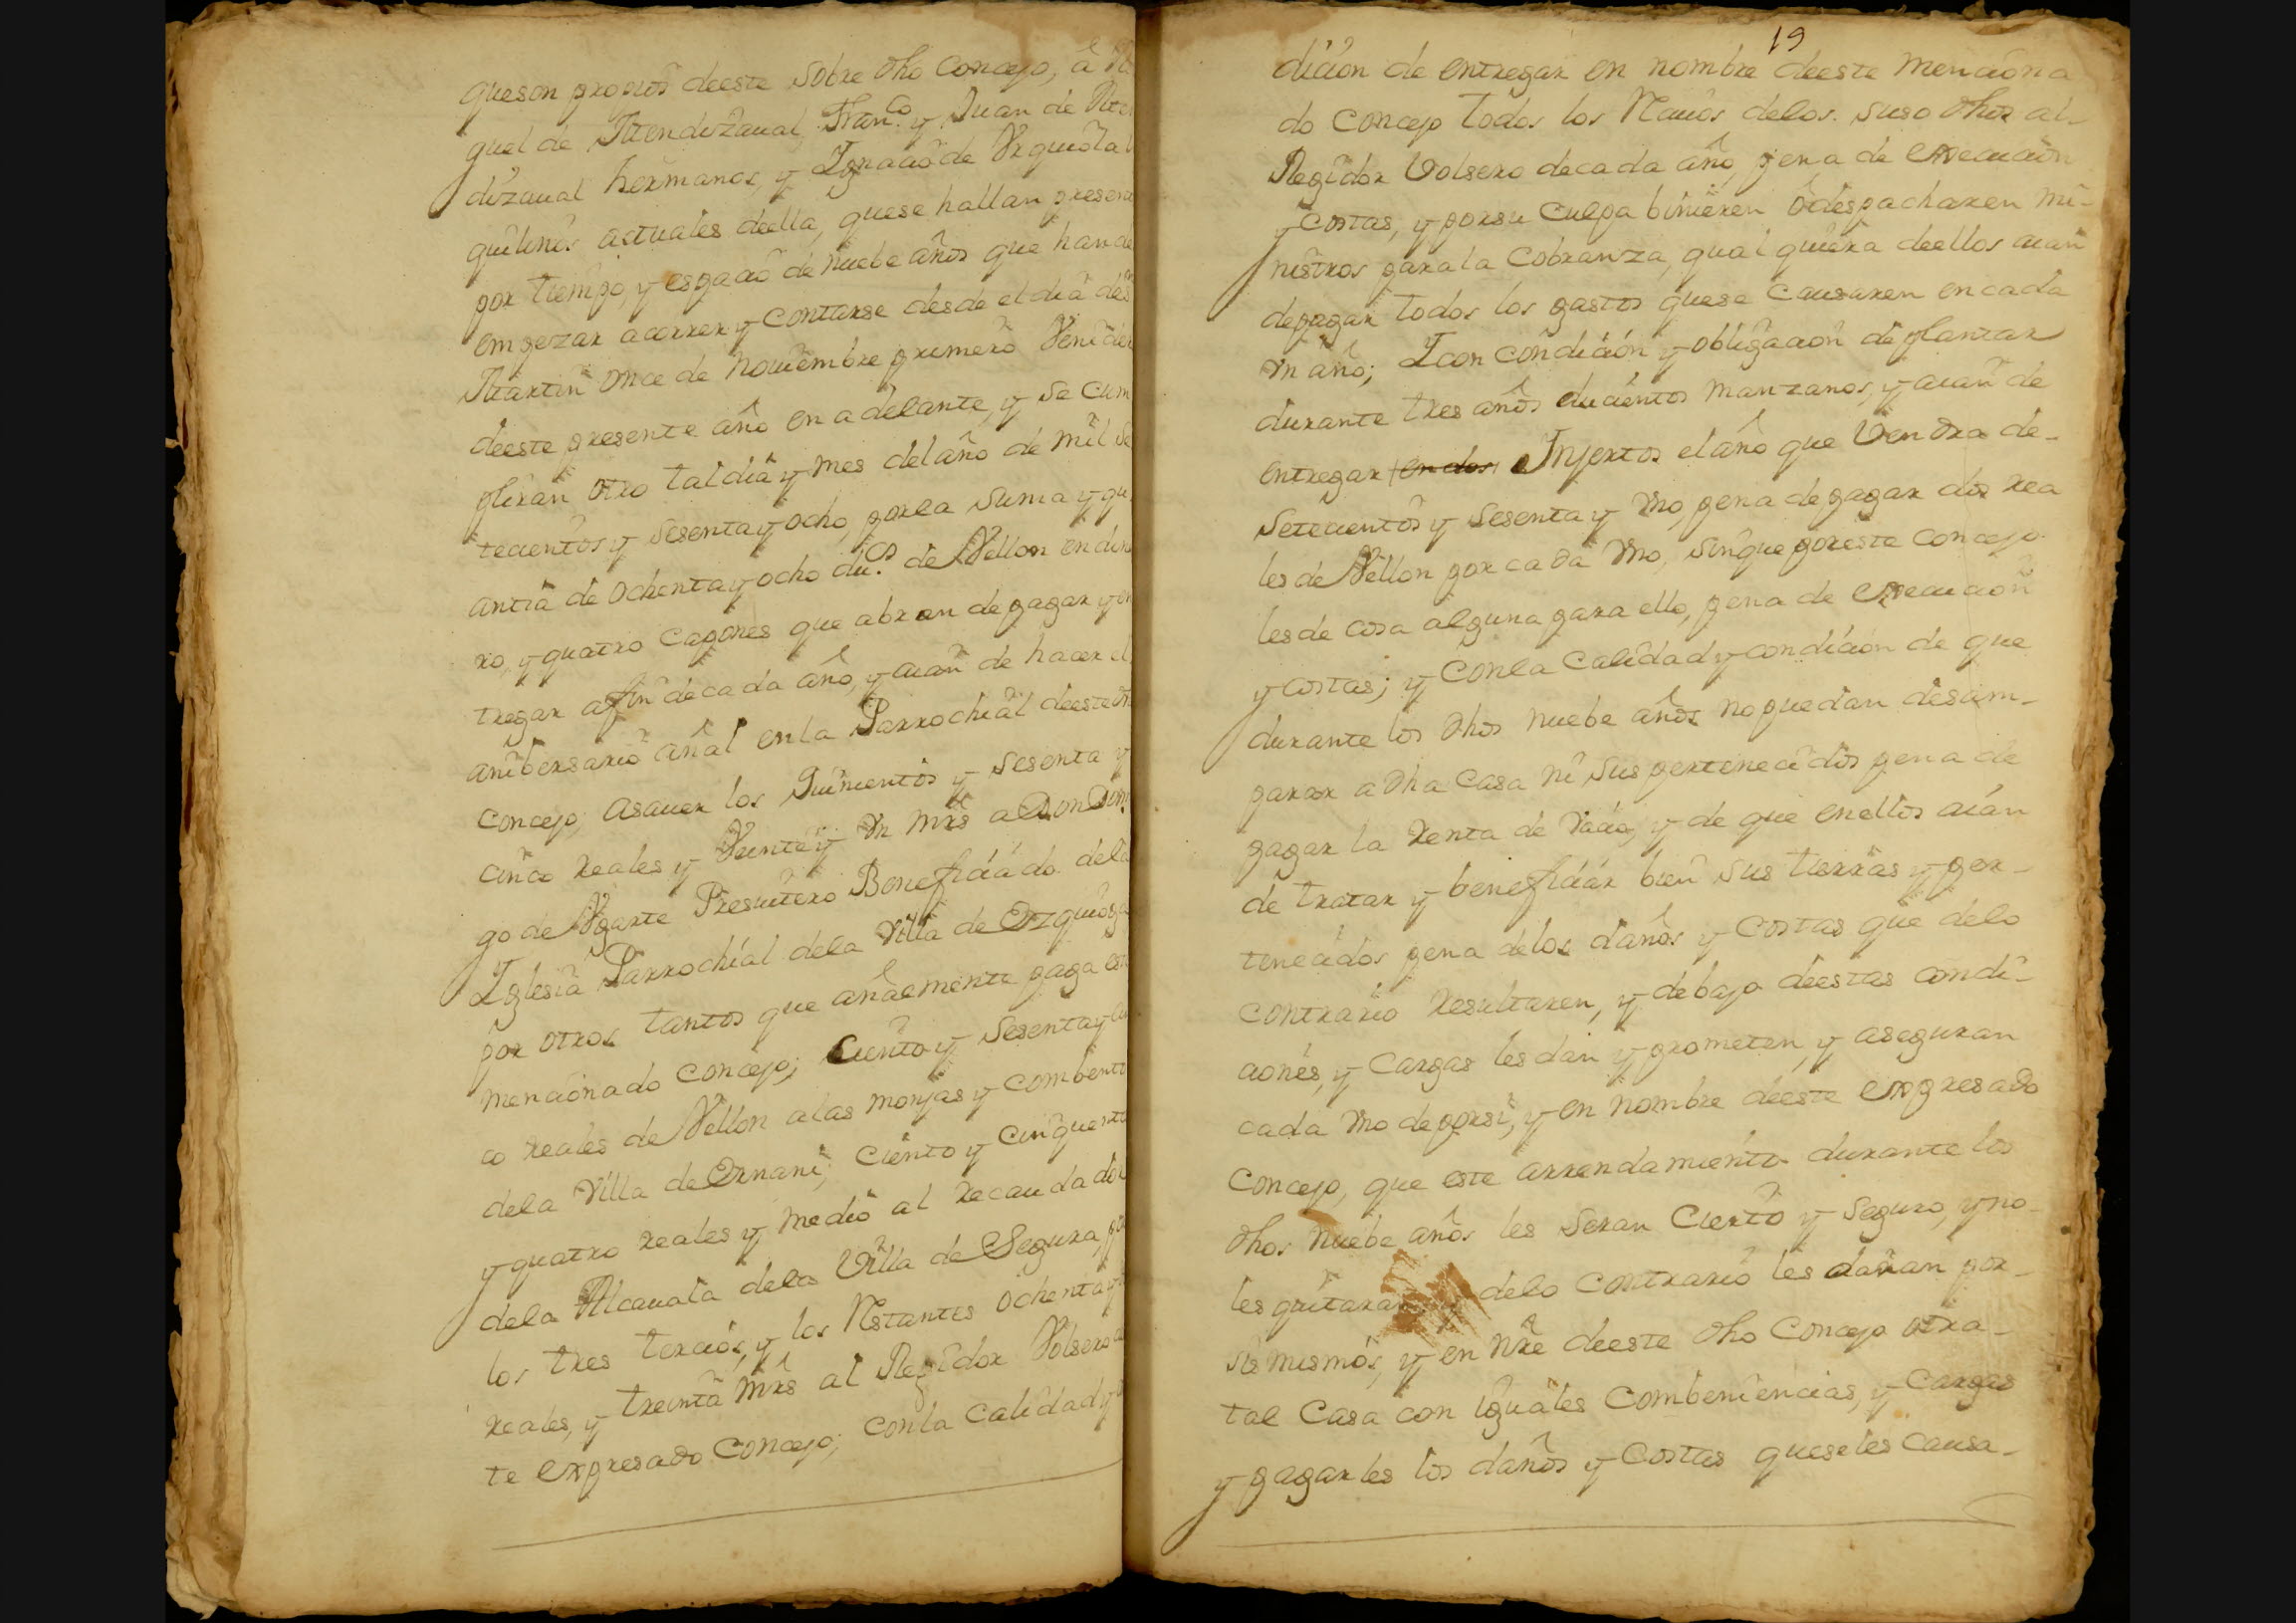 queson propios deeste sobre dho Concejo, â
guel de Mendizaual, Fran.co y Juan de
dizaual hermanos, y Ignacio de Vrquiola
quilinos actuales deella, quese hallan presen
por tiempo, y espacio de nuebe años que hande
empezar acorrer y Contarse desde el dia de
Martin once de Nouiembre primero Venide
deeste presente año en adelante, y se Cum
pliran otro tal dia y mes del año de mil se
tecientos y Sesenta y ocho, porla Suma y qu
antia de ochenta y ocho du.os de Vellon endine
ro, y quatro Capones que abran de pagar y en
tregar afin decada año, y auan de hacer el
anibersario añal enla Parrochial deeste
Concejo; asauer los Quinientos y sesenta y
cinco Reales y Veinte y Vn mrs a Don Domi
go de Vgarte Presuitero Beneficiado dela
Iglesia Parrochial dela Villa de Ezquioga
por otros tantos que añalmente paga este
mencionado Concejo; Ciento y Sesenta y cin
co Reales de Vellon alas monjas y Combento
dela Villa de Ernani; Ciento y Cinquenta
y quatro Reales y medio al Recaudador
dela Alcauala dela Villa de Segura, por
los tres tercios, y los Restantes ochenta y
Reales, y treinta mrs al Regidor Volsero
te expresado Concejo; conla Calidad y
19
dicion de entregar en nombre deeste menciona
do Concejo todos los Recauos delos suso dhos al
Regidor Volsero decada año, pena de execucion
y costas, y porsu Culpa binieren ô despacharen mi-
nistros parala Cobranza, qualquiera deellos auan
depagar todos los gastos quese Causaren encada
Vn año; Icon condicion y obligacion de plantar
durante tres años ducientos manzanos, y auan de
entregar en dos Injertos el año que Vendra de-
Setecientos y Sesenta y Vno, pena de pagar dos rea
les de Vellon por cada Vno, sinque poreste Concejo
les de cosa alguna para ello, pena de execucion
y costas; y Conla Calidad y condicion de que
durante los dhos nuebe años nopuedan desam-
parar a dha Casa ni sus pertenecidos pena de
pagar la renta de Vacio, y de que enellos aian
de tratar y beneficiar bien sus tierras y per-
tenecidos pena delos daños y Costas que delo
contrario resultaren, y debajo deestas condi-
ciones, y Cargas les dan y prometen, y aseguran
cada Vno deporsi, y en nombre deeste expresado
Concejo, que este arrendamiento durante los
dhos nuebe años les seran Cierto y Seguro, y no-
les quitaran, y delo Contrario les daran por-
sis mismos, y en Nre deeste dho Concejo otra-
tal Casa con iguales Combeniencias, y Cargas
y pagarles los daños y Costas quese les Causa-